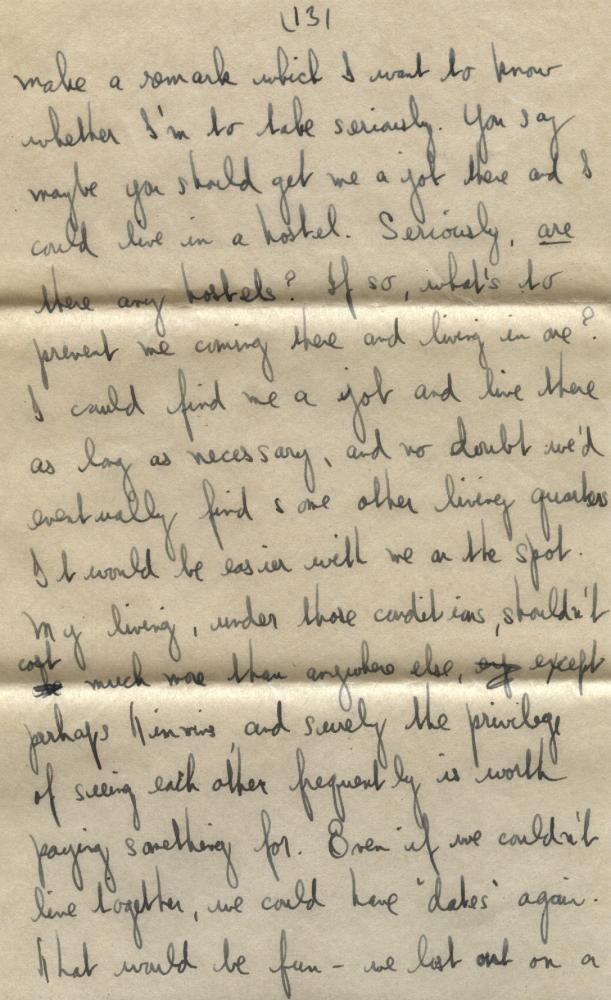 (13)
make a remark which I want to know
whether I'm to take seriously. You say
maybe you should get me a job there and I
could live in a hostel. Seriously, are
there any hostels? If so, what's to
prevent me coming there and living in one?
I could find me a job and live there
as long as necessary, and no doubt we'd
eventually find some other living quarters
It would be easier with me on the spot.
My living, under those conditions, shouldn't
cost much more than anywhere else, except
perhaps and surely the privilege
of seeing each other frequently is worth
paying something for. Even if we couldn't
live together, we could have "dates" again.
That would be fun - we lost out on a